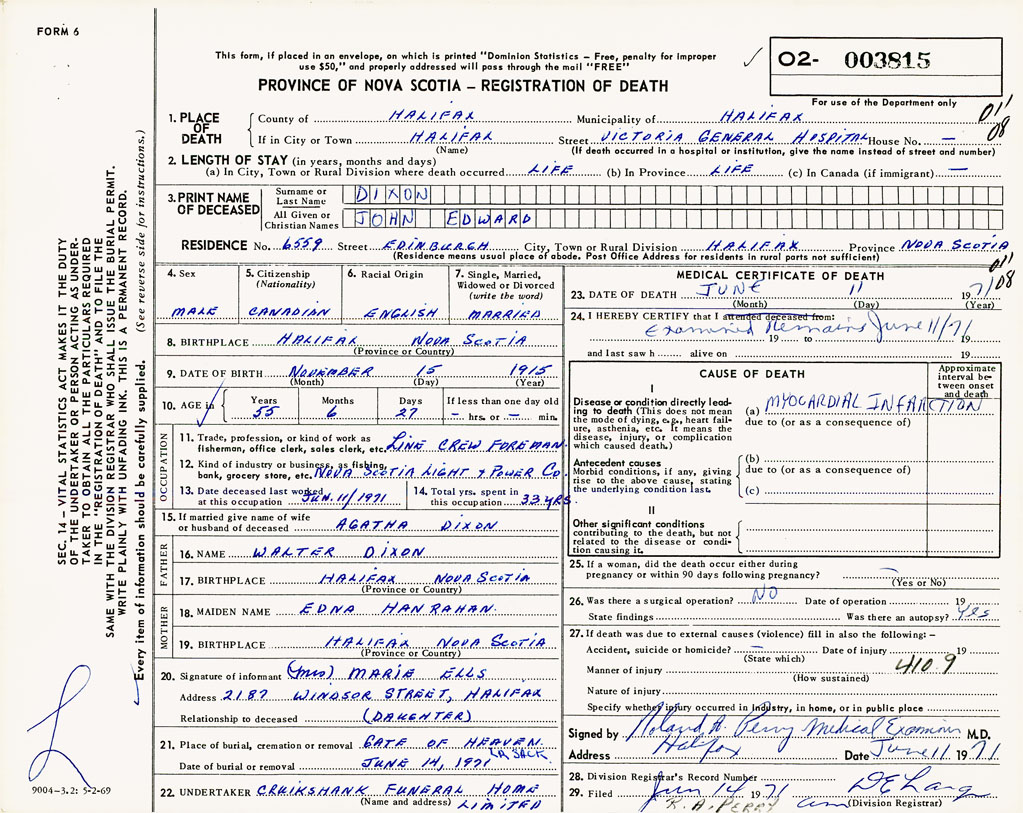 FORM 6
This form, if placed in an envelope, on which is printed "Dominion Statistics - Free, penalty for improper
use $50," and properly addressed will pass through the mail "FREE"
PROVINCE OF NOVA SCOTIA – REGISTRATION OF DEATH
02- 003815
For use of the Department only
011
08
1. PLACE OF DEATH
County of HALIFAX Municipality of HALIFAX
If in City or Town HALIFAX Street VICTORIA GENERAL HOSPITAL House No. —
(Name) (If death occurred in a hospital or institution, give the name instead of street and number)
2. LENGTH OF STAY (in years, months and days)
(a) In City, Town or Rural Division where death occurred LIFE (b) In Province LIFE (c) In Canada (if immigrant) —
3. PRINT NAME OF DECEASED
Surname or Last Name DIXON
All Given or Christian Names JOHN EDWARD
RESIDENCE No. 6559 Street EDINBURGH City, Town or Rural Division HALIFAX Province NOVA SCOTIA
(Residence means usual place of abode. Post Office Address for residents in rural parts not sufficient)
011
08
4. Sex MALE
5. Citizenship (Nationality) CANADIAN
6. Racial Origin ENGLISH
7. Single, Married, Widowed or Divorced (write the word) MARRIED
8. BIRTHPLACE HALIFAX NOVA SCOTIA
(Province or Country)
9. DATE OF BIRTH NOVEMBER 15 1915
(Month) (Day) (Year)
10. AGE in Years 55 Months 6 Days 27 If less than one day old — hrs. or — min.
OCCUPATION
11. Trade, profession, or kind of work as
fisherman, office clerk, sales clerk, etc. LINE CREW FOREMAN
12. Kind of industry or business, as fishing,
bank, grocery store, etc. NOVA SCOTIA LIGHT & POWER CO.
13. Date deceased last worked
at this occupation JUN. 11/1971
14. Total yrs. spent in
this occupation 33 YRS
15. If married give name of wife
or husband of deceased AGATHA DIXON
FATHER
16. NAME WALTER DIXON
17. BIRTHPLACE HALIFAX NOVA SCOTIA
(Province or Country)
MOTHER
18. MAIDEN NAME EDNA HANRAHAN
19. BIRTHPLACE HALIFAX NOVA SCOTIA
(Province or Country)
20. Signature of informant (MRS) MARIE ELLS
Address 2187 WINDSOR STREET, HALIFAX
Relationship to deceased (DAUGHTER)
21. Place of burial, cremation or removal GATE OF HEAVEN
LR SACK.
Date of burial or removal JUNE 14, 1971
22. UNDERTAKER CRUIKSHANK FUNERAL HOME
(Name and address) LIMITED
MEDICAL CERTIFICATE OF DEATH
23. DATE OF DEATH JUNE 11 1971
(Month) (Day) (Year)
24. I HEREBY CERTIFY that I attended deceased from:
Examined Remains June 11/71
19 to 19
and last saw h alive on 19
CAUSE OF DEATH
Approximate interval between onset and death
I
Disease or condition directly leading to death (This does not mean the mode of dying, e.g., heart failure, asthenia, etc. It means the disease, injury, or complication which caused death.)
(a) MYOCARDIAL INFARCTION
due to (or as a consequence of)
Antecedent causes
Morbid conditions, if any, giving rise to the above cause, stating the underlying condition last.
(b)
due to (or as a consequence of)
(c)
II
Other significant conditions
contributing to the death, but not related to the disease or condition causing it.
25. If a woman, did the death occur either during
pregnancy or within 90 days following pregnancy? —
(Yes or No)
26. Was there a surgical operation? NO Date of operation 19
State findings Was there an autopsy? Yes
27. If death was due to external causes (violence) fill in also the following: –
Accident, suicide or homicide? — Date of injury 19
(State which)
Manner of injury 410.9
(How sustained)
Nature of injury
Specify whether injury occurred in industry, in home, or in public place
Signed by Roland A. Perry Medical Examiner M.D.
Address Halifax Date June 11 1971
28. Division Registrar's Record Number
29. Filed Jun 14 1971
(Division Registrar)
R. A. PERRY
SEC. 14 – VITAL STATISTICS ACT MAKES IT THE DUTY
OF THE UNDERTAKER OR PERSON ACTING AS UNDER-
TAKER TO OBTAIN ALL THE PARTICULARS REQUIRED
IN THE "REGISTRATION OF DEATH" AND TO FILE THE
SAME WITH THE DIVISION REGISTRAR WHO SHALL ISSUE THE BURIAL PERMIT.
WRITE PLAINLY WITH UNFADING INK. THIS IS A PERMANENT RECORD.
Every item of information should be carefully supplied. (See reverse side for instructions.)
9004-3.2: 5-2-69